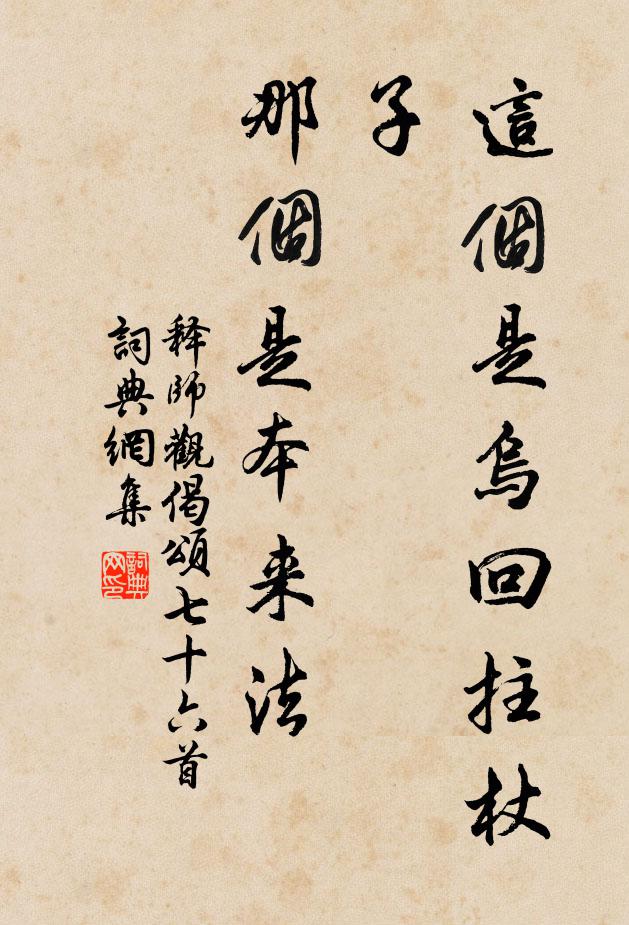 這個是烏回拄杖
子
那個是本来法
释師觀偈頌七十六首
詞典網集
詞典
网印